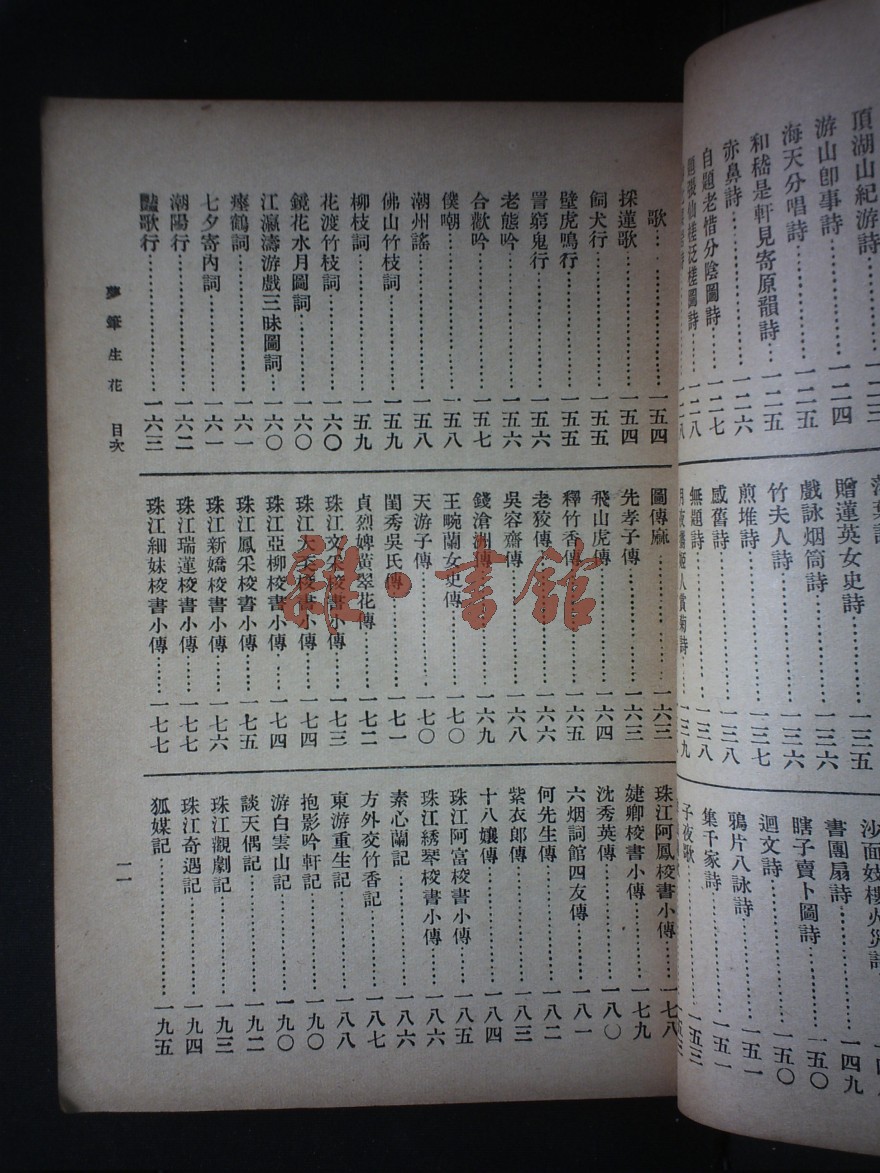 頂湖山紀游詩……一二三
游山卽事詩……一二四
海天分唱詩……一二五
和嵇是軒見寄原韻詩……一二五
赤鼻詩……一二六
自題老惜分陰圖詩……一二七
贈蓮英女史詩……一三五
戲詠烟筒詩……一三六
竹夫人詩……一三六
煎堆詩……一三七
感舊詩……一三八
無題詩……一三八
書團扇詩……一四九
瞎子賣卜圖詩……一五〇
迴文詩……一五〇
鴉片八詠詩……一五一
集千家詩……一五一
子夜歌……一五三
歌……一五四
採蓮歌……一五四
飼犬行……一五五
壁虎鳴行……一五五
詈窮鬼行……一五六
老態吟……一五六
合歡吟……一五七
僕嘲……一五八
潮州謠……一五八
佛山竹枝詞……一五九
柳枝詞……一五九
花渡竹枝詞……一六〇
鏡花水月圖詞……一六〇
江瀛濤游戲三昧圖詞……一六〇
瘞鶴詞……一六一
七夕寄內詞……一六一
潮陽行……一六二
豔歌行……一六三
圖傳麻……一六三
先孝子傳……一六三
飛山虎傳……一六四
釋竹香傳……一六五
老狡傳……一六六
吳容齋傳……一六八
錢滄洲傳……一六九
王畹蘭女史傳……一七〇
天游子傳……一七〇
閨秀吳氏傳……一七一
貞烈婢黃翠花傳……一七二
珠江文采校書小傳……一七三
珠江大天校書小傳……一七四
珠江亞柳校書小傳……一七四
珠江鳳采校書小傳……一七五
珠江新嬌校書小傳……一七六
珠江瑞蓮校書小傳……一七七
珠江細妹校書小傳……一七七
珠江阿鳳校書小傳……一七八
婕卿校書小傳……一七九
沈秀英傳……一八〇
六烟詞館四友傳……一八一
何先生傳……一八二
紫衣郎傳……一八三
十八孃傳……一八四
珠江阿富校書小傳……一八五
珠江綉琴校書小傳……一八六
素心蘭記……一八六
方外交竹香記……一八七
東游重生記……一八八
抱影吟軒記……一九〇
游白雲山記……一九〇
談天偶記……一九二
珠江觀劇記……一九三
珠江奇遇記……一九四
狐媒記……一九五
夢筆生花 目次
一一
雜·書館